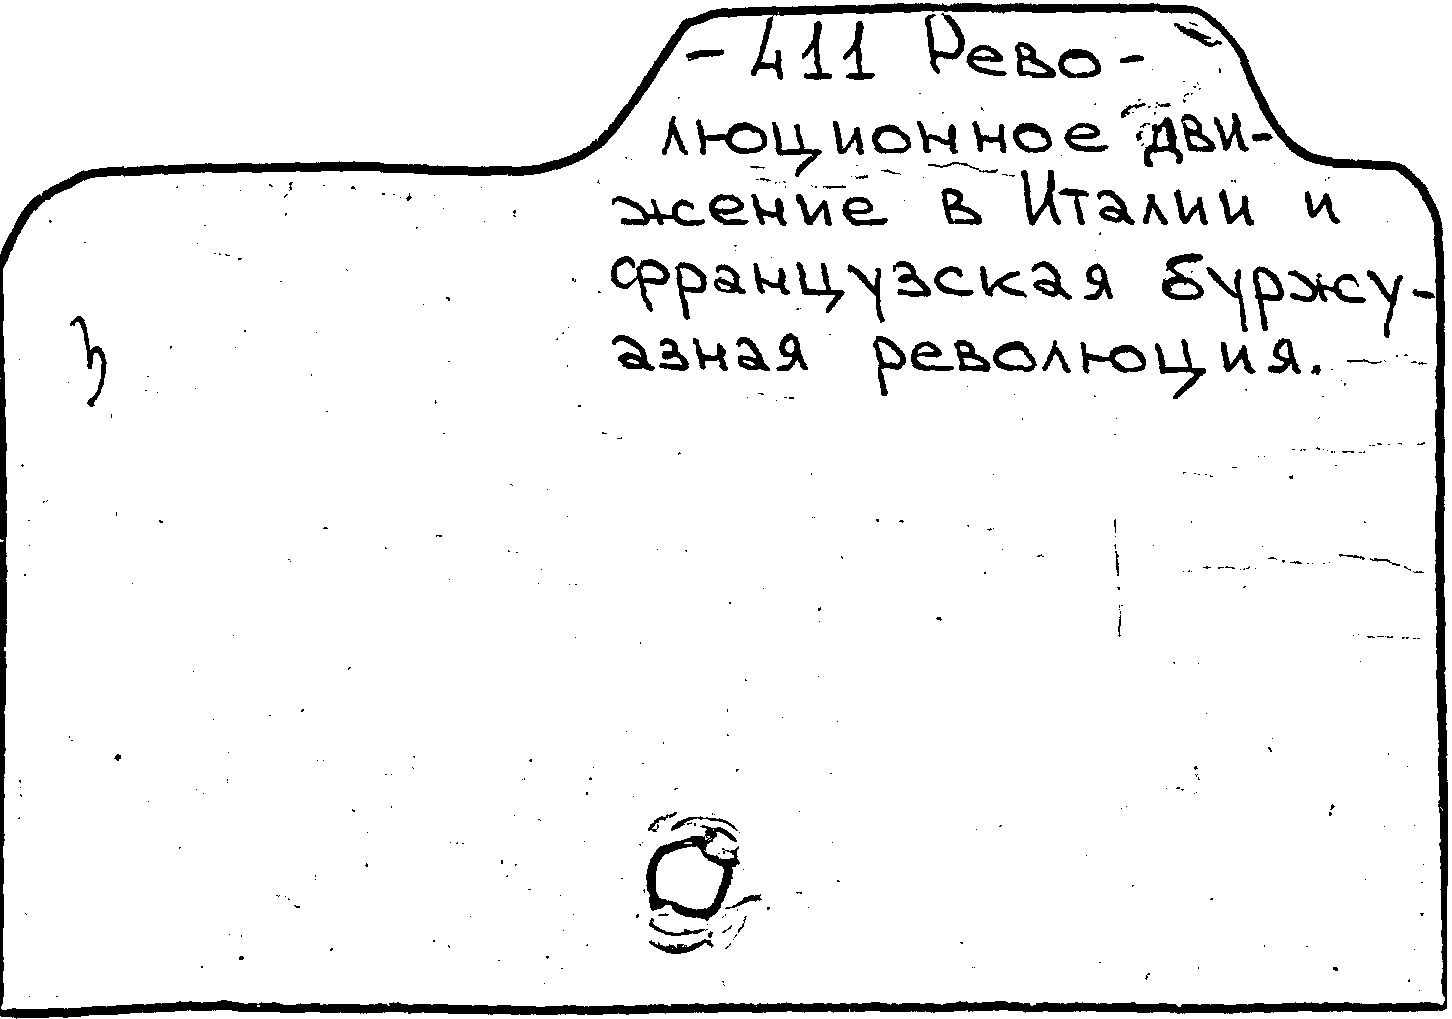 -411 Рево-
люционное дви-
жение в Италии и
французская буржу-
азная революция.